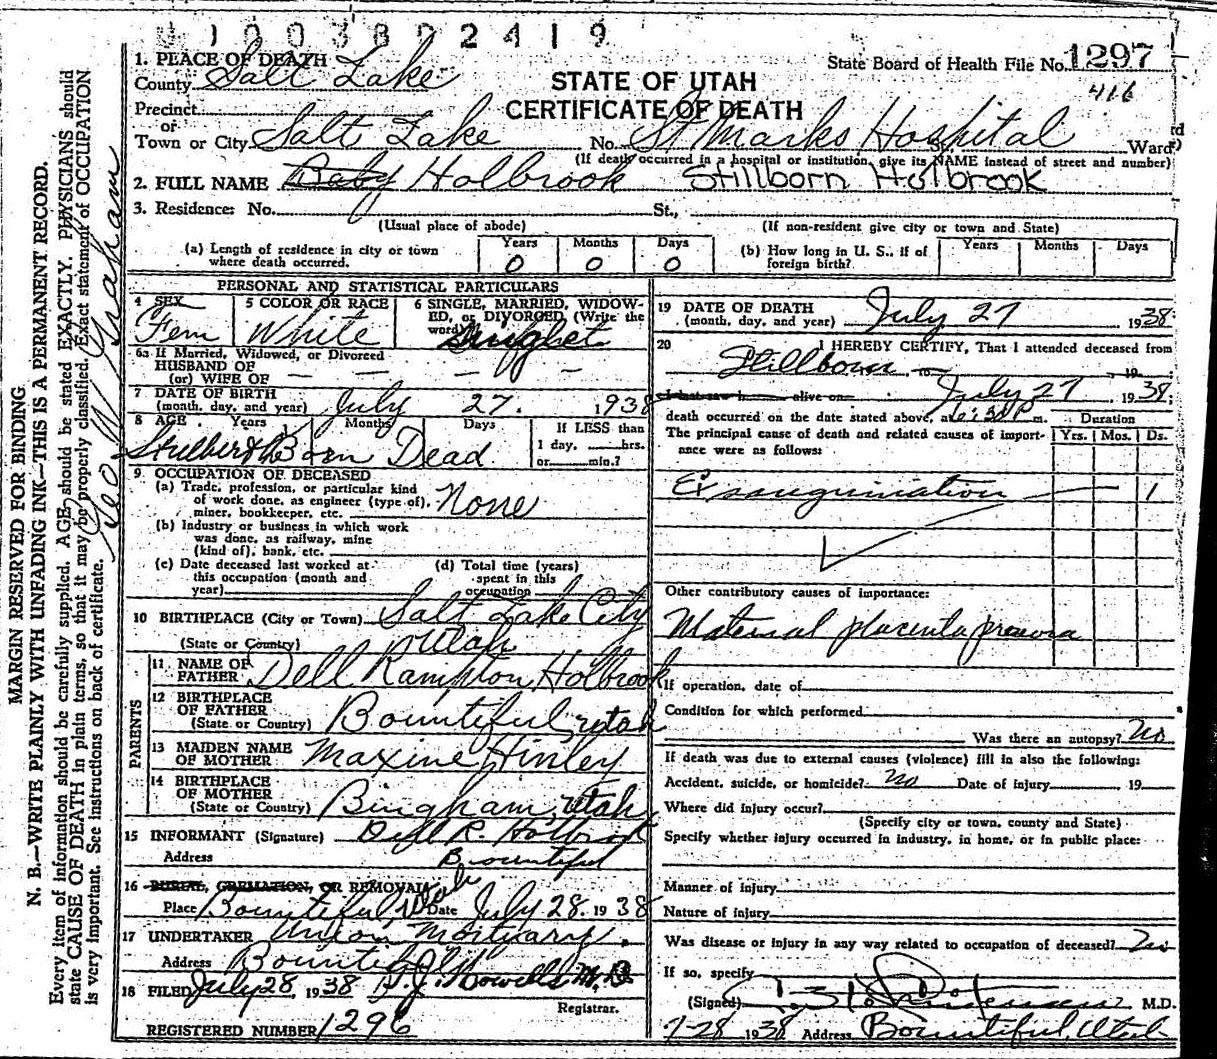 1003802419
1. PLACE OF DEATH
County Salt Lake
STATE OF UTAH
CERTIFICATE OF DEATH
State Board of Health File No. 1297
416
Precinct
or
Town or City Salt Lake No. St Marks Hospital St., Ward
(If death occurred in a hospital or institution, give its NAME instead of street and number)
2. FULL NAME Baby Holbrook Stillborn Holbrook
3. Residence: No. St.,
(Usual place of abode) (If non-resident give city or town and State)
(a) Length of residence in city or town where death occurred. Years 0 Months 0 Days 0
(b) How long in U. S., if of foreign birth? Years Months Days
PERSONAL AND STATISTICAL PARTICULARS
4 SEX Fem
5 COLOR OR RACE White
6 SINGLE, MARRIED, WIDOWED, or DIVORCED, (Write the word)
6a If Married, Widowed, or Divorced
HUSBAND OF
(or) WIFE OF
7 DATE OF BIRTH
(month, day, and year) July 27. 1938
8 AGE Years Months Days
Born Dead
If LESS than
1 day, hrs.
or min.?
9 OCCUPATION OF DECEASED
(a) Trade, profession, or particular kind
of work done, as engineer (type of),
miner, bookkeeper, etc. None
(b) Industry or business in which work
was done, as railway, mine
(kind of), bank, etc.
(c) Date deceased last worked at
this occupation (month and
year)
(d) Total time (years)
spent in this
occupation
10 BIRTHPLACE (City or Town) Salt Lake City
(State or Country) Utah
PARENTS
11 NAME OF
FATHER Dell Rampton Holbrook
12 BIRTHPLACE
OF FATHER
(State or Country) Bountiful, Utah
13 MAIDEN NAME
OF MOTHER Maxine Hinley
14 BIRTHPLACE
OF MOTHER
(State or Country) Bingham, Utah
15 INFORMANT (Signature) Dell R. Holbrook
Address Bountiful
16 BURIAL, CREMATION, OR REMOVAL
Place Bountiful, Utah Date July 28. 1938
17 UNDERTAKER Union Mortuary.
Address Bountiful
18 FILED July 28, 1938 M.D.
Registrar.
REGISTERED NUMBER 1296
19 DATE OF DEATH
(month, day, and year) July 27 1938
20 I HEREBY CERTIFY, That I attended deceased from
Stillborn to 19
I last saw h alive on July 27 1938;
death occurred on the date stated above, at 6:30 P m.
The principal cause of death and related causes of importance were as follows:
Duration
Yrs. Mos. Ds.
Exsanguination 1
Other contributory causes of importance:
Maternal placenta previa
If operation, date of
Condition for which performed
Was there an autopsy? No
If death was due to external causes (violence) fill in also the following:
Accident, suicide, or homicide? No Date of injury 19
Where did injury occur?
(Specify city or town, county and State)
Specify whether injury occurred in industry, in home, or in public place:
Manner of injury
Nature of injury
Was disease or injury in any way related to occupation of deceased? No
If so, specify
(Signed) M.D.
7-28 1938 Address Bountiful, Utah
MARGIN RESERVED FOR BINDING
N. B.—WRITE PLAINLY WITH UNFADING INK—THIS IS A PERMANENT RECORD.
Every item of information should be carefully supplied. AGE should be stated EXACTLY. PHYSICIANS should
state CAUSE OF DEATH in plain terms, so that it may be properly classified. Exact statement of OCCUPATION
is very important. See instructions on back of certificate.
Geo W Graham